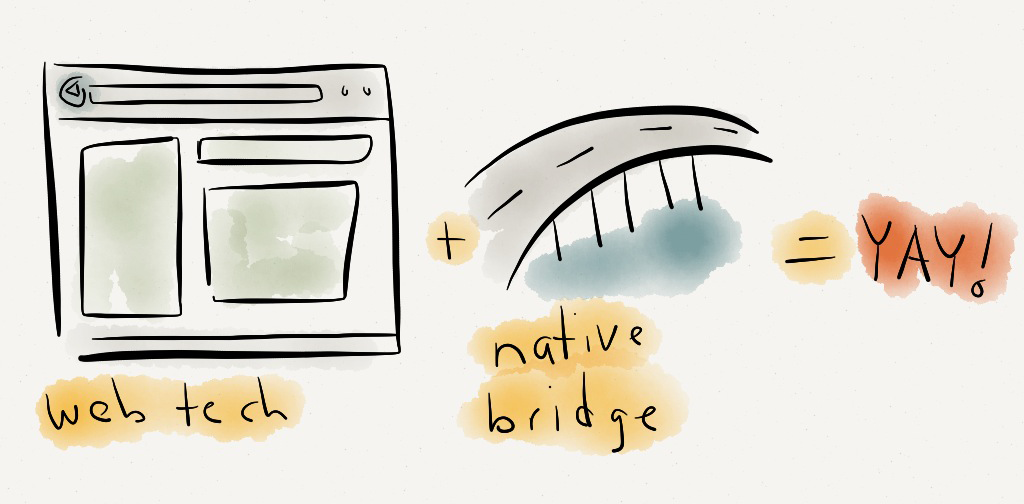 web tech
+
native
bridge
=
YAY!